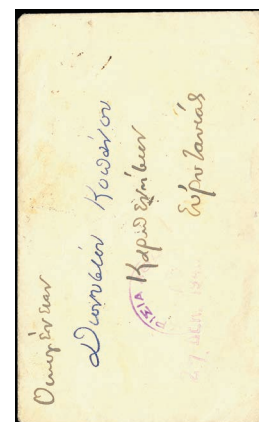 Οικογένειαν
Διονυσίου Κοπάνου
Καρπενήσιον
Ευρυτανίας